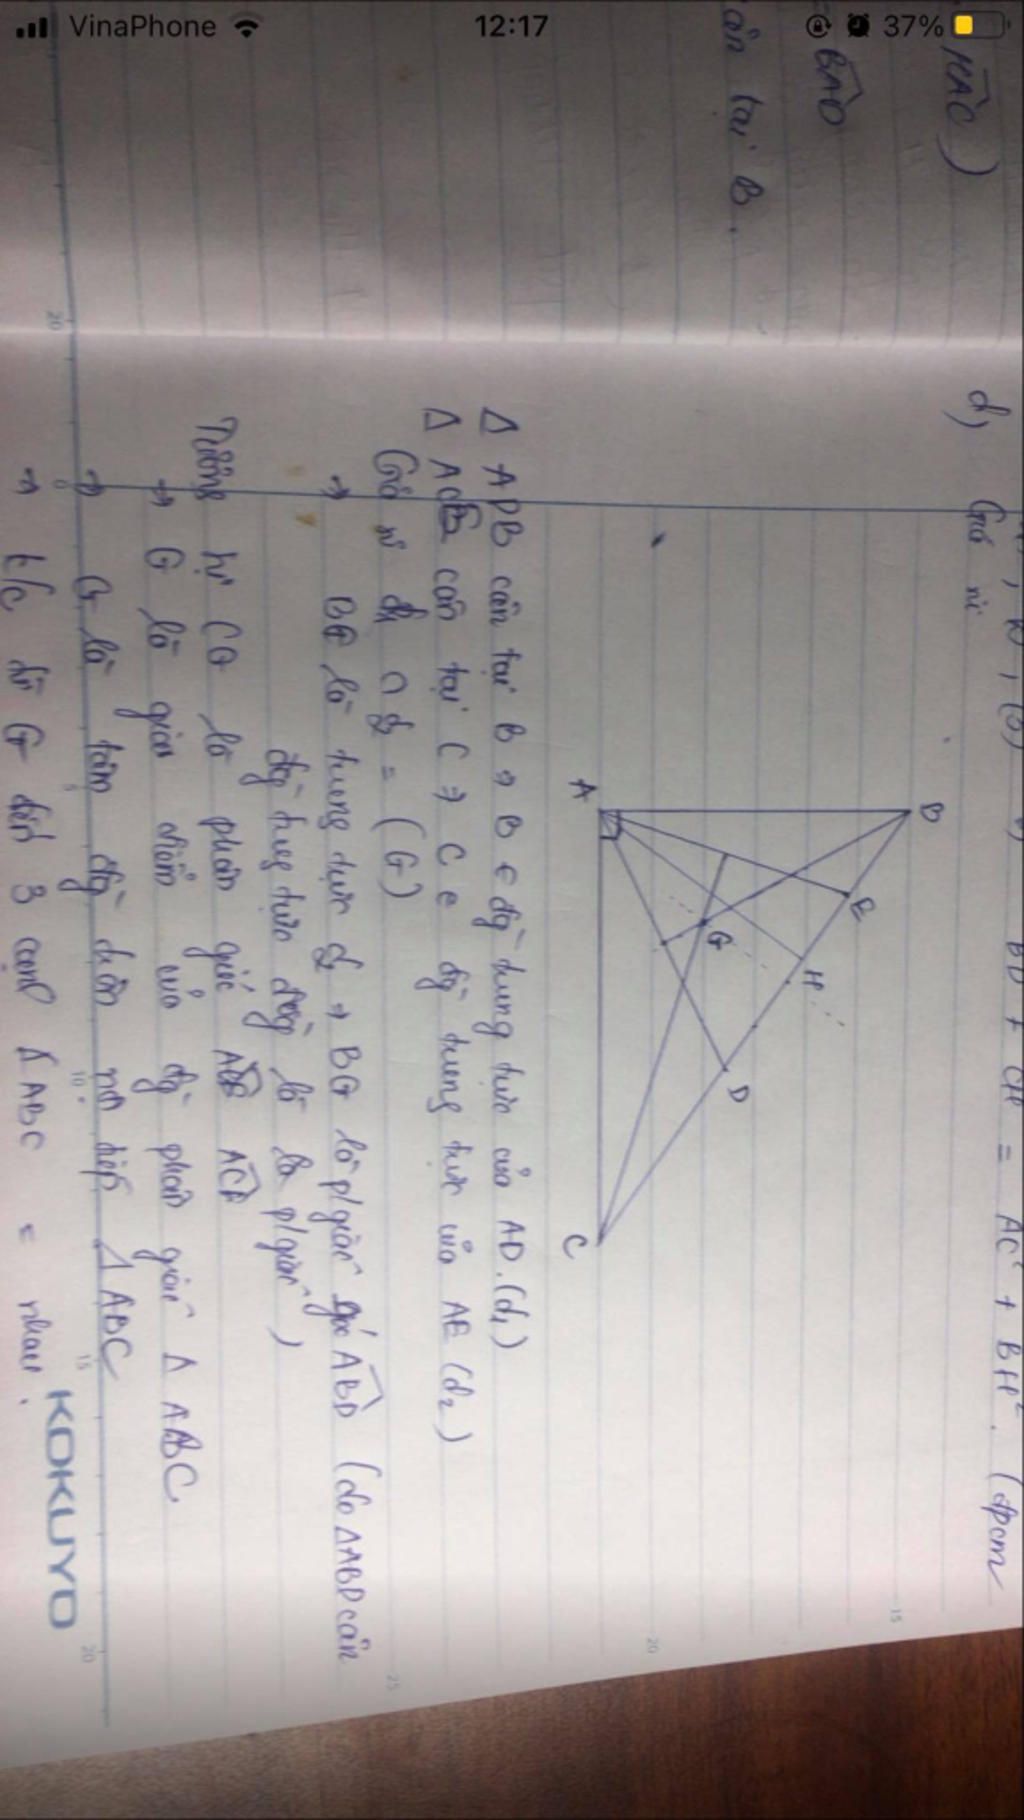 VinaPhone 12:17 37%
HAC )
BAD
cân tại B.
BD + CH = AC² + BH². (đpcm
d, Giả sử
B
E
H
G
D
A
C
Δ ADB cân tại B ⇒ B ∈ đg trung trực của AD. (d₁)
Δ ACE cân tại C ⇒ C ∈ đg trung trực của AE (d₂)
Giả sử d₁ ∩ d₂ = (G)
→ BG là trung trực d₁ → BG là p/giác góc ABD (do ΔABD cân
đg trung trực đồng là là p/giác)
Tương tự CG là phân giác ACB ACH
→ G là giao điểm của đg phân giác Δ ABC
→ G là tâm đg tròn nội tiếp Δ ABC
→ k/c từ G đến 3 cạnh Δ ABC = nhau.
KOKUYO
20
0
5
10
15
20
25
20
15